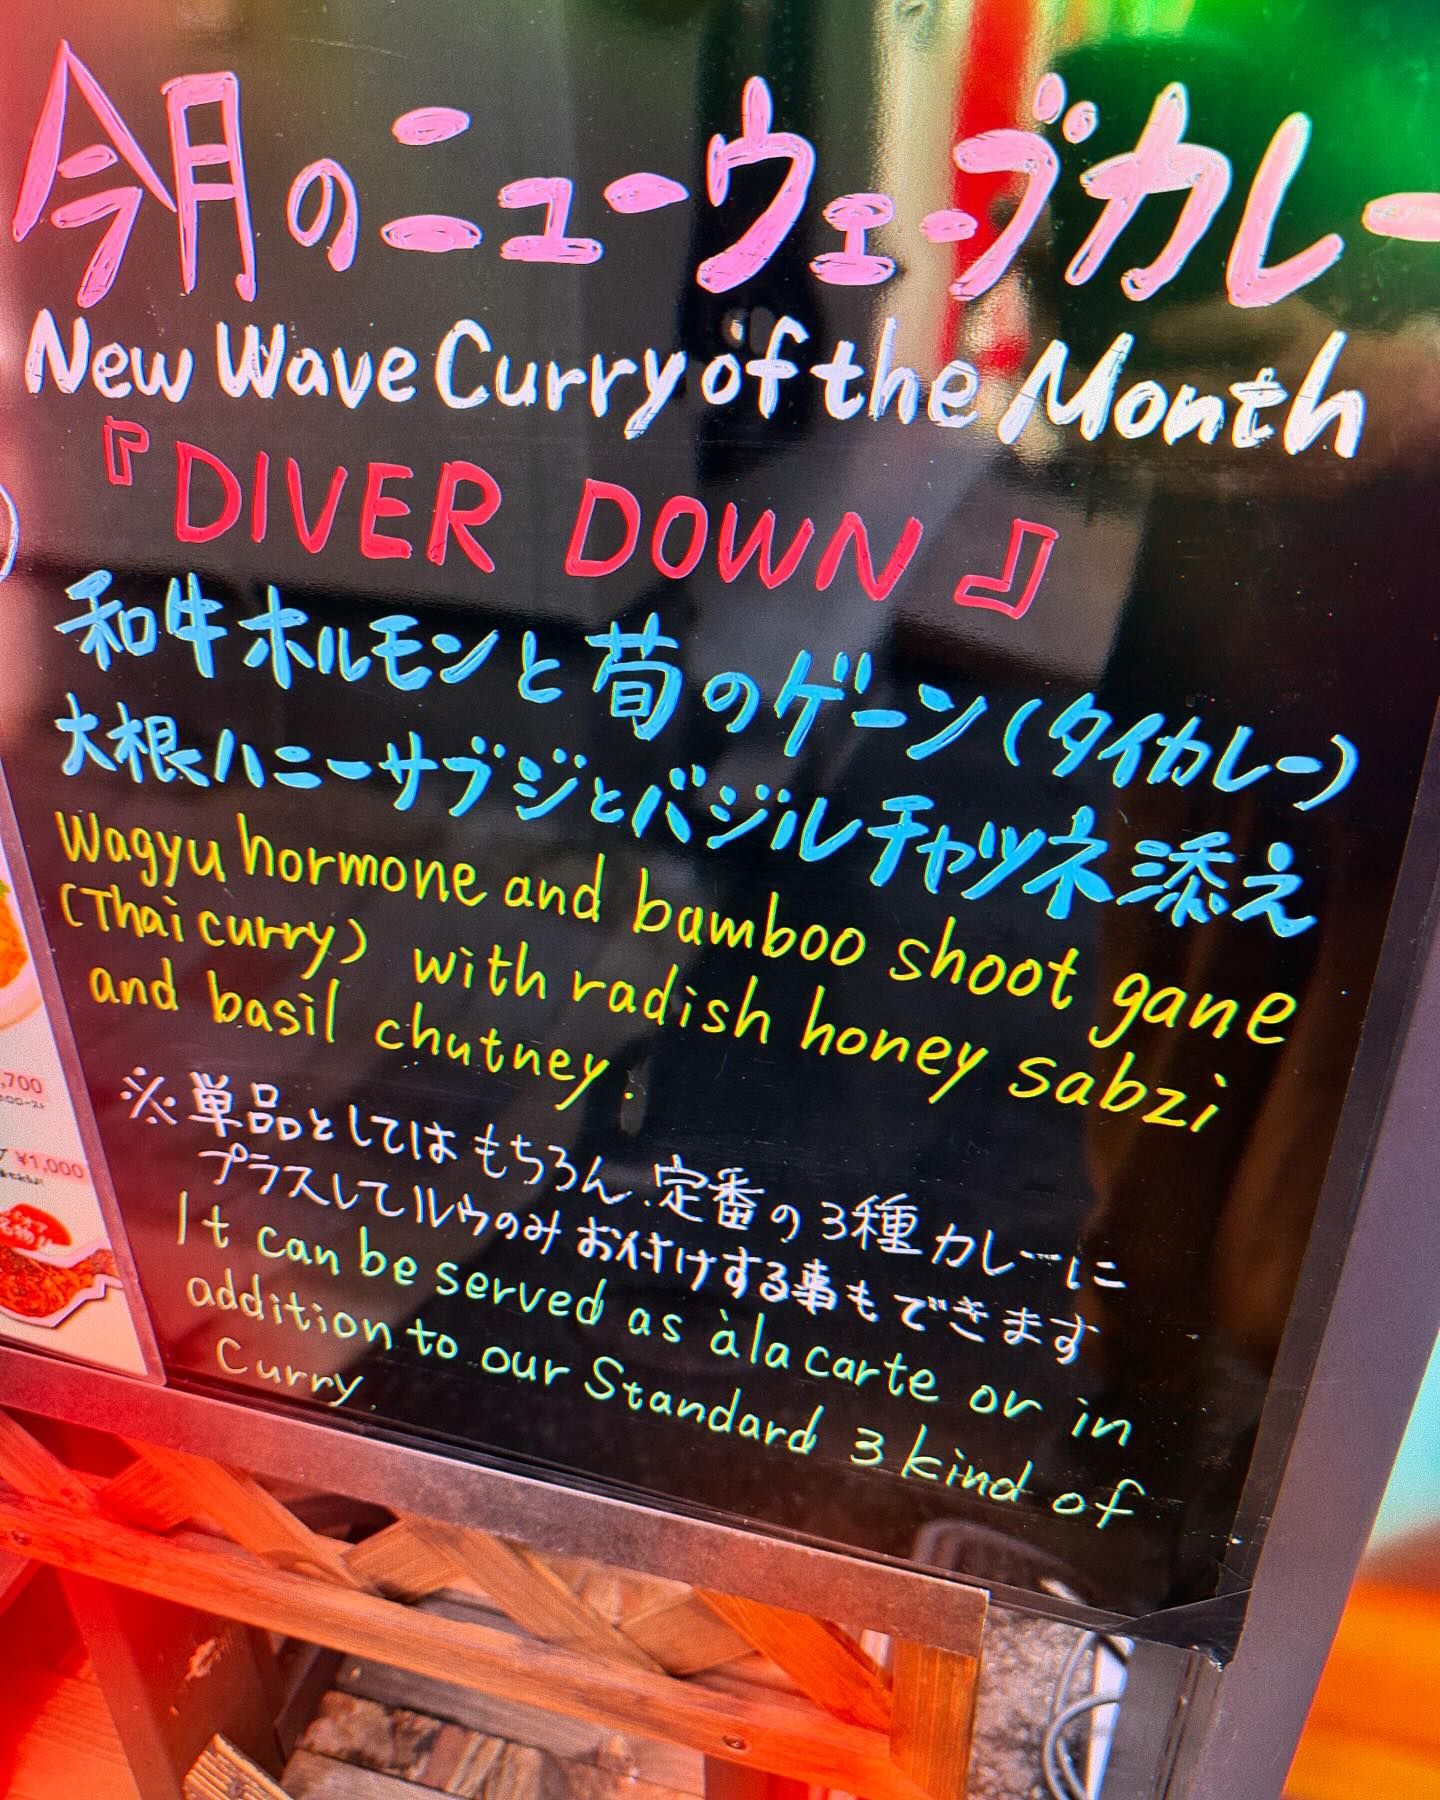 今月のニューウェーブカレー
New Wave Curry of the Month
『DIVER DOWN』
和牛ホルモンと筍のゲーン(タイカレー)
大根ハニーサブジとバジルチャツネ添え
Wagyu hormone and bamboo shoot gane
(Thai curry) with radish honey sabzi
and basil chutney.
※単品としてはもちろん、定番の3種カレーに
プラスしてルウのみお付けする事もできます
It can be served as àla carte or in
addition to our Standard 3 kind of
Curry.
,700
¥1,000